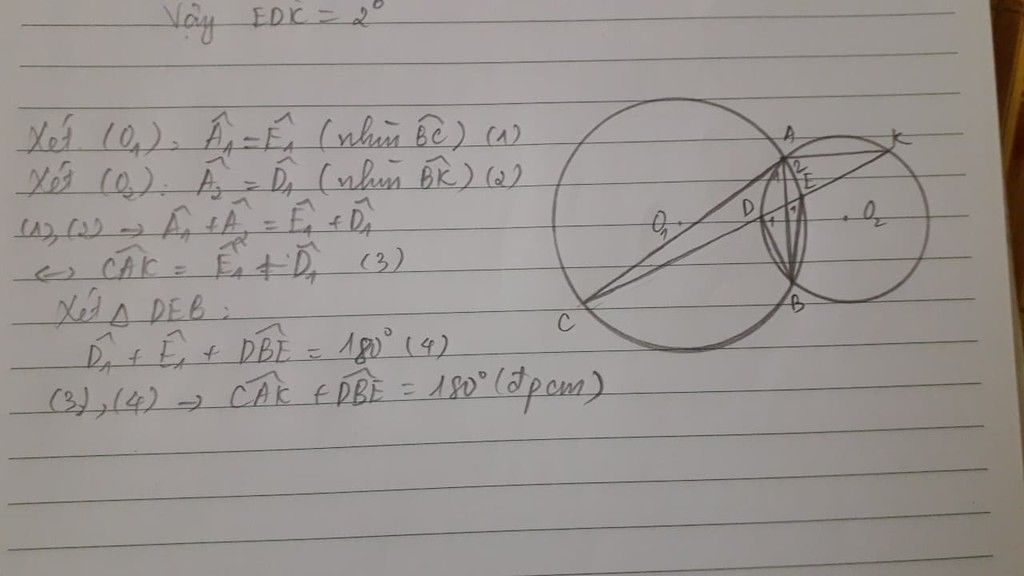 Vậy EDK = 2°
Xét (O₁): Â₁ = Ê₁ (nhìn B͡C) (1)
Xét (O₂): Â₂ = D̂₁ (nhìn B͡K) (2)
(1),(2) → Â₁ + Â₂ = Ê₁ + D̂₁
⇔ CÂK = Ê₁ + D̂₁ (3)
Xét △ DEB:
D̂₁ + Ê₁ + DB̂E = 180° (4)
(3),(4) → CÂK + DB̂E = 180° (đpcm)
A
K
2
1
E
D
1
1
O₁
O₂
B
C